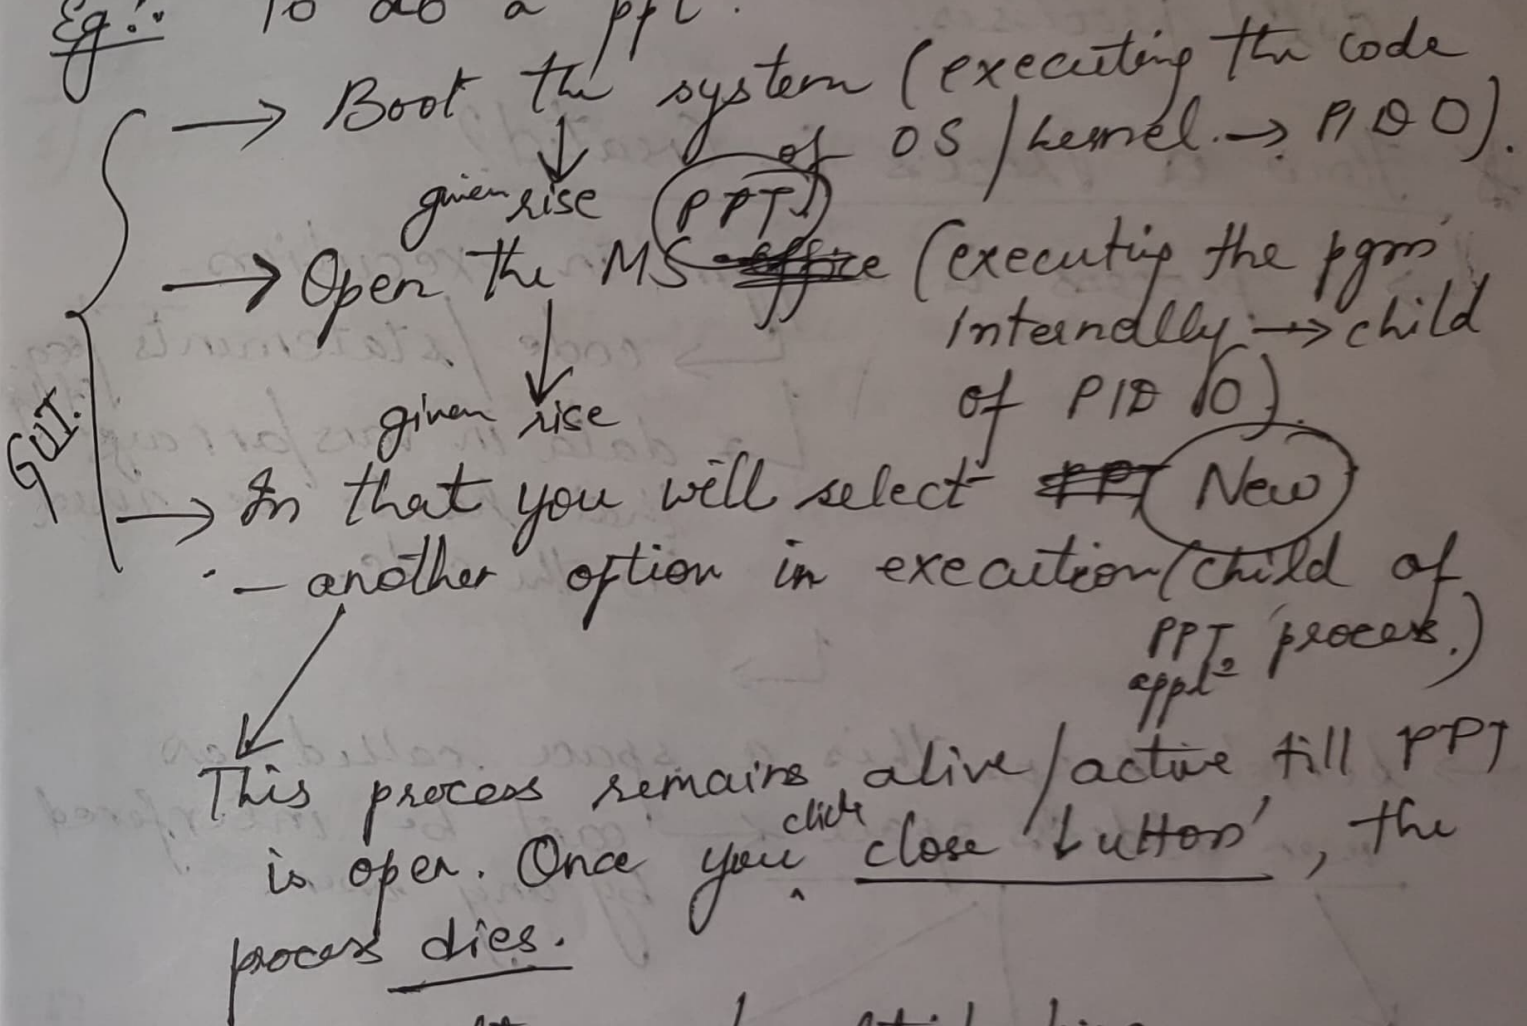 Eg:. To do a ppt.
→ Boot the system (executing the code
of OS / kernel → PID 0).
given rise
PPT
→ Open the MS office (executing the pgm
internally → child
of PID 0).
given rise
GUI.
→ In that you will select PPT New
- another option in execution (child of
PPT process.)
appl²
This process remains alive/active till PPT
is open. Once you click close 'button', the
process dies.